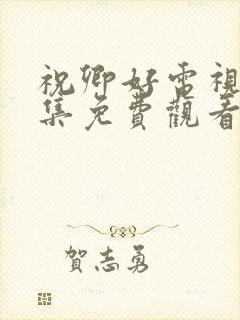 祝卿好電視
集免費觀看
賀志勇